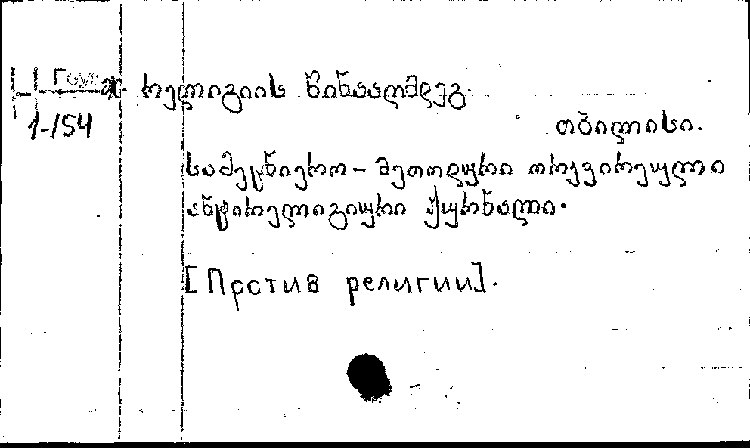 რელიგიის წინააღმდეგ.
1-154
თბილისი.
სამეცნიერო - მეთოდური ორკვირეული
ანტირელიგიური ჟურნალი.
[Против религии].